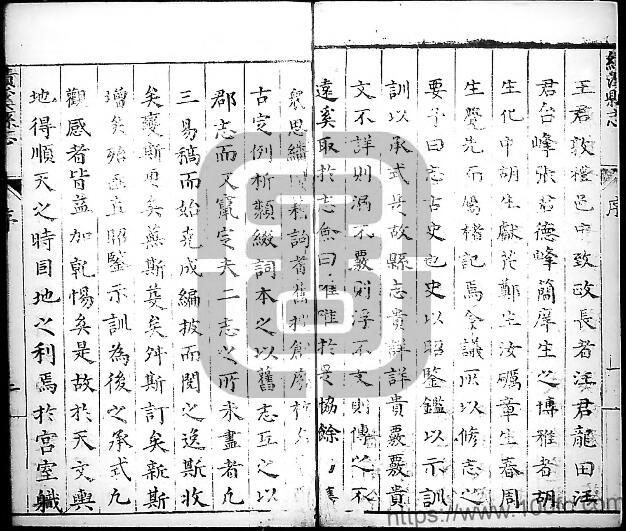 績溪縣志
序
王君敦樸邑中致政長者汪君龍田汪
君台峰張君德峰簡庠生之博雅者胡
生化中胡生獻花鄭生汝礪章生春周
生覺先而鳩楮記焉僉議所以修志之
要予曰志古史也史以昭鑒鑑以示訓
訓以承式是故縣志貴詳詳貴覈覈貴
文不詳則漏不覈則浮不文則傳之不
遠奚取於志僉曰唯唯於是協餘
眾思
古定例析類綴詞本之以舊志互之以
郡志而又竄定夫二志之所未盡者凡
三易稿而始克成編披而閱之逸斯收
矣蔓斯更矣蕪斯芟矣舛斯訂矣新斯
增矣殆亟立昭鑒示訓為後之承式凡
觀感者皆益加乾惕矣是故於天文輿
地得順天之時因地之利焉於宮室職
序
https://www.100fd.com